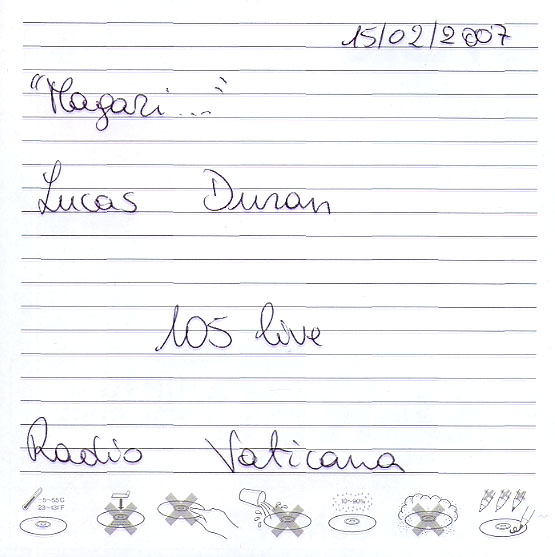 15/02/2007
"Magari..."
Lucas Duran
105 live
Radio Vaticana
5~55C 10~90%
23~131F